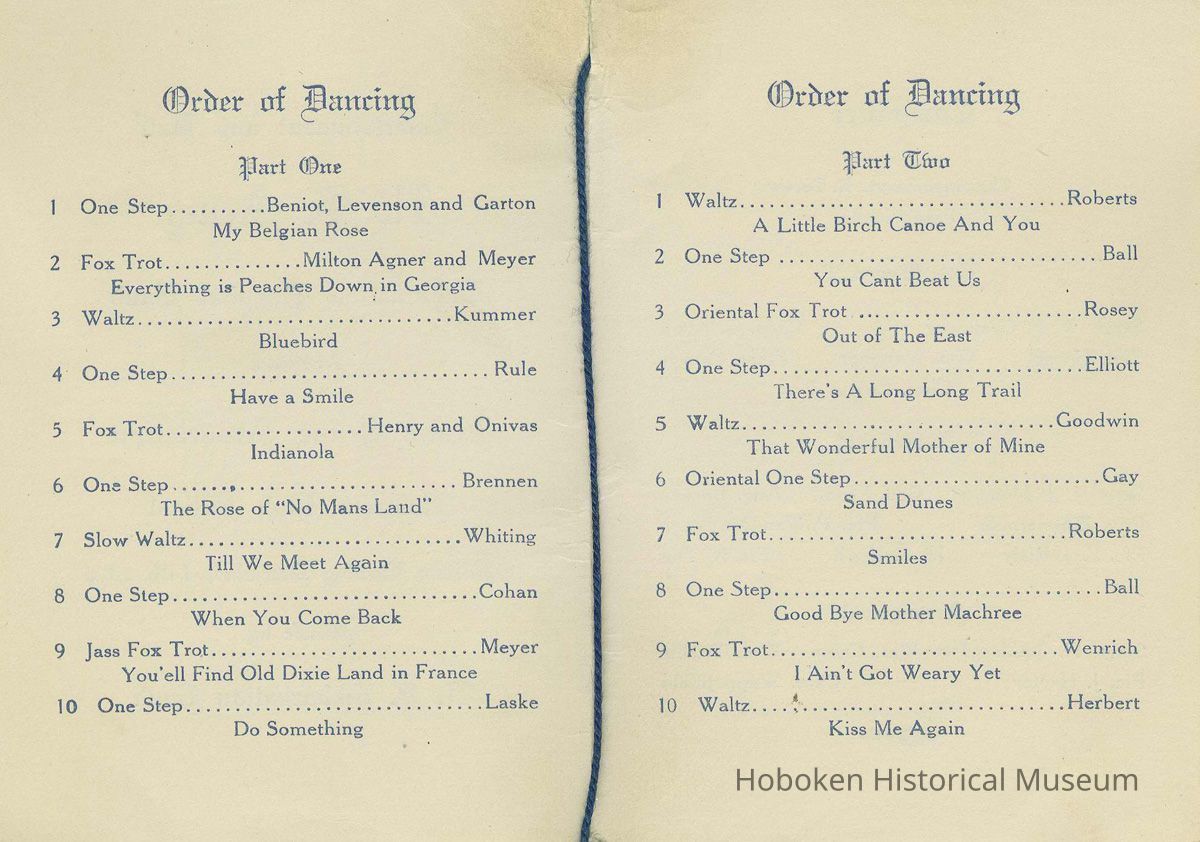 Order of Dancing
Part One
1 One Step..........Beniot, Levenson and Garton
My Belgian Rose
2 Fox Trot..............Milton Agner and Meyer
Everything is Peaches Down in Georgia
3 Waltz................................Kummer
Bluebird
4 One Step................................Rule
Have a Smile
5 Fox Trot....................Henry and Onivas
Indianola
6 One Step.............................Brennen
The Rose of "No Mans Land"
7 Slow Waltz...........................Whiting
Till We Meet Again
8 One Step...............................Cohan
When You Come Back
9 Jass Fox Trot...........................Meyer
You'ell Find Old Dixie Land in France
10 One Step..............................Laske
Do Something
Order of Dancing
Part Two
1 Waltz.................................Roberts
A Little Birch Canoe And You
2 One Step ................................Ball
You Cant Beat Us
3 Oriental Fox Trot .........................Rosey
Out of The East
4 One Step...............................Elliott
There's A Long Long Trail
5 Waltz...............................Goodwin
That Wonderful Mother of Mine
6 Oriental One Step.........................Gay
Sand Dunes
7 Fox Trot..............................Roberts
Smiles
8 One Step.................................Ball
Good Bye Mother Machree
9 Fox Trot.............................Wenrich
I Ain't Got Weary Yet
10 Waltz...............................Herbert
Kiss Me Again
Hoboken Historical Museum